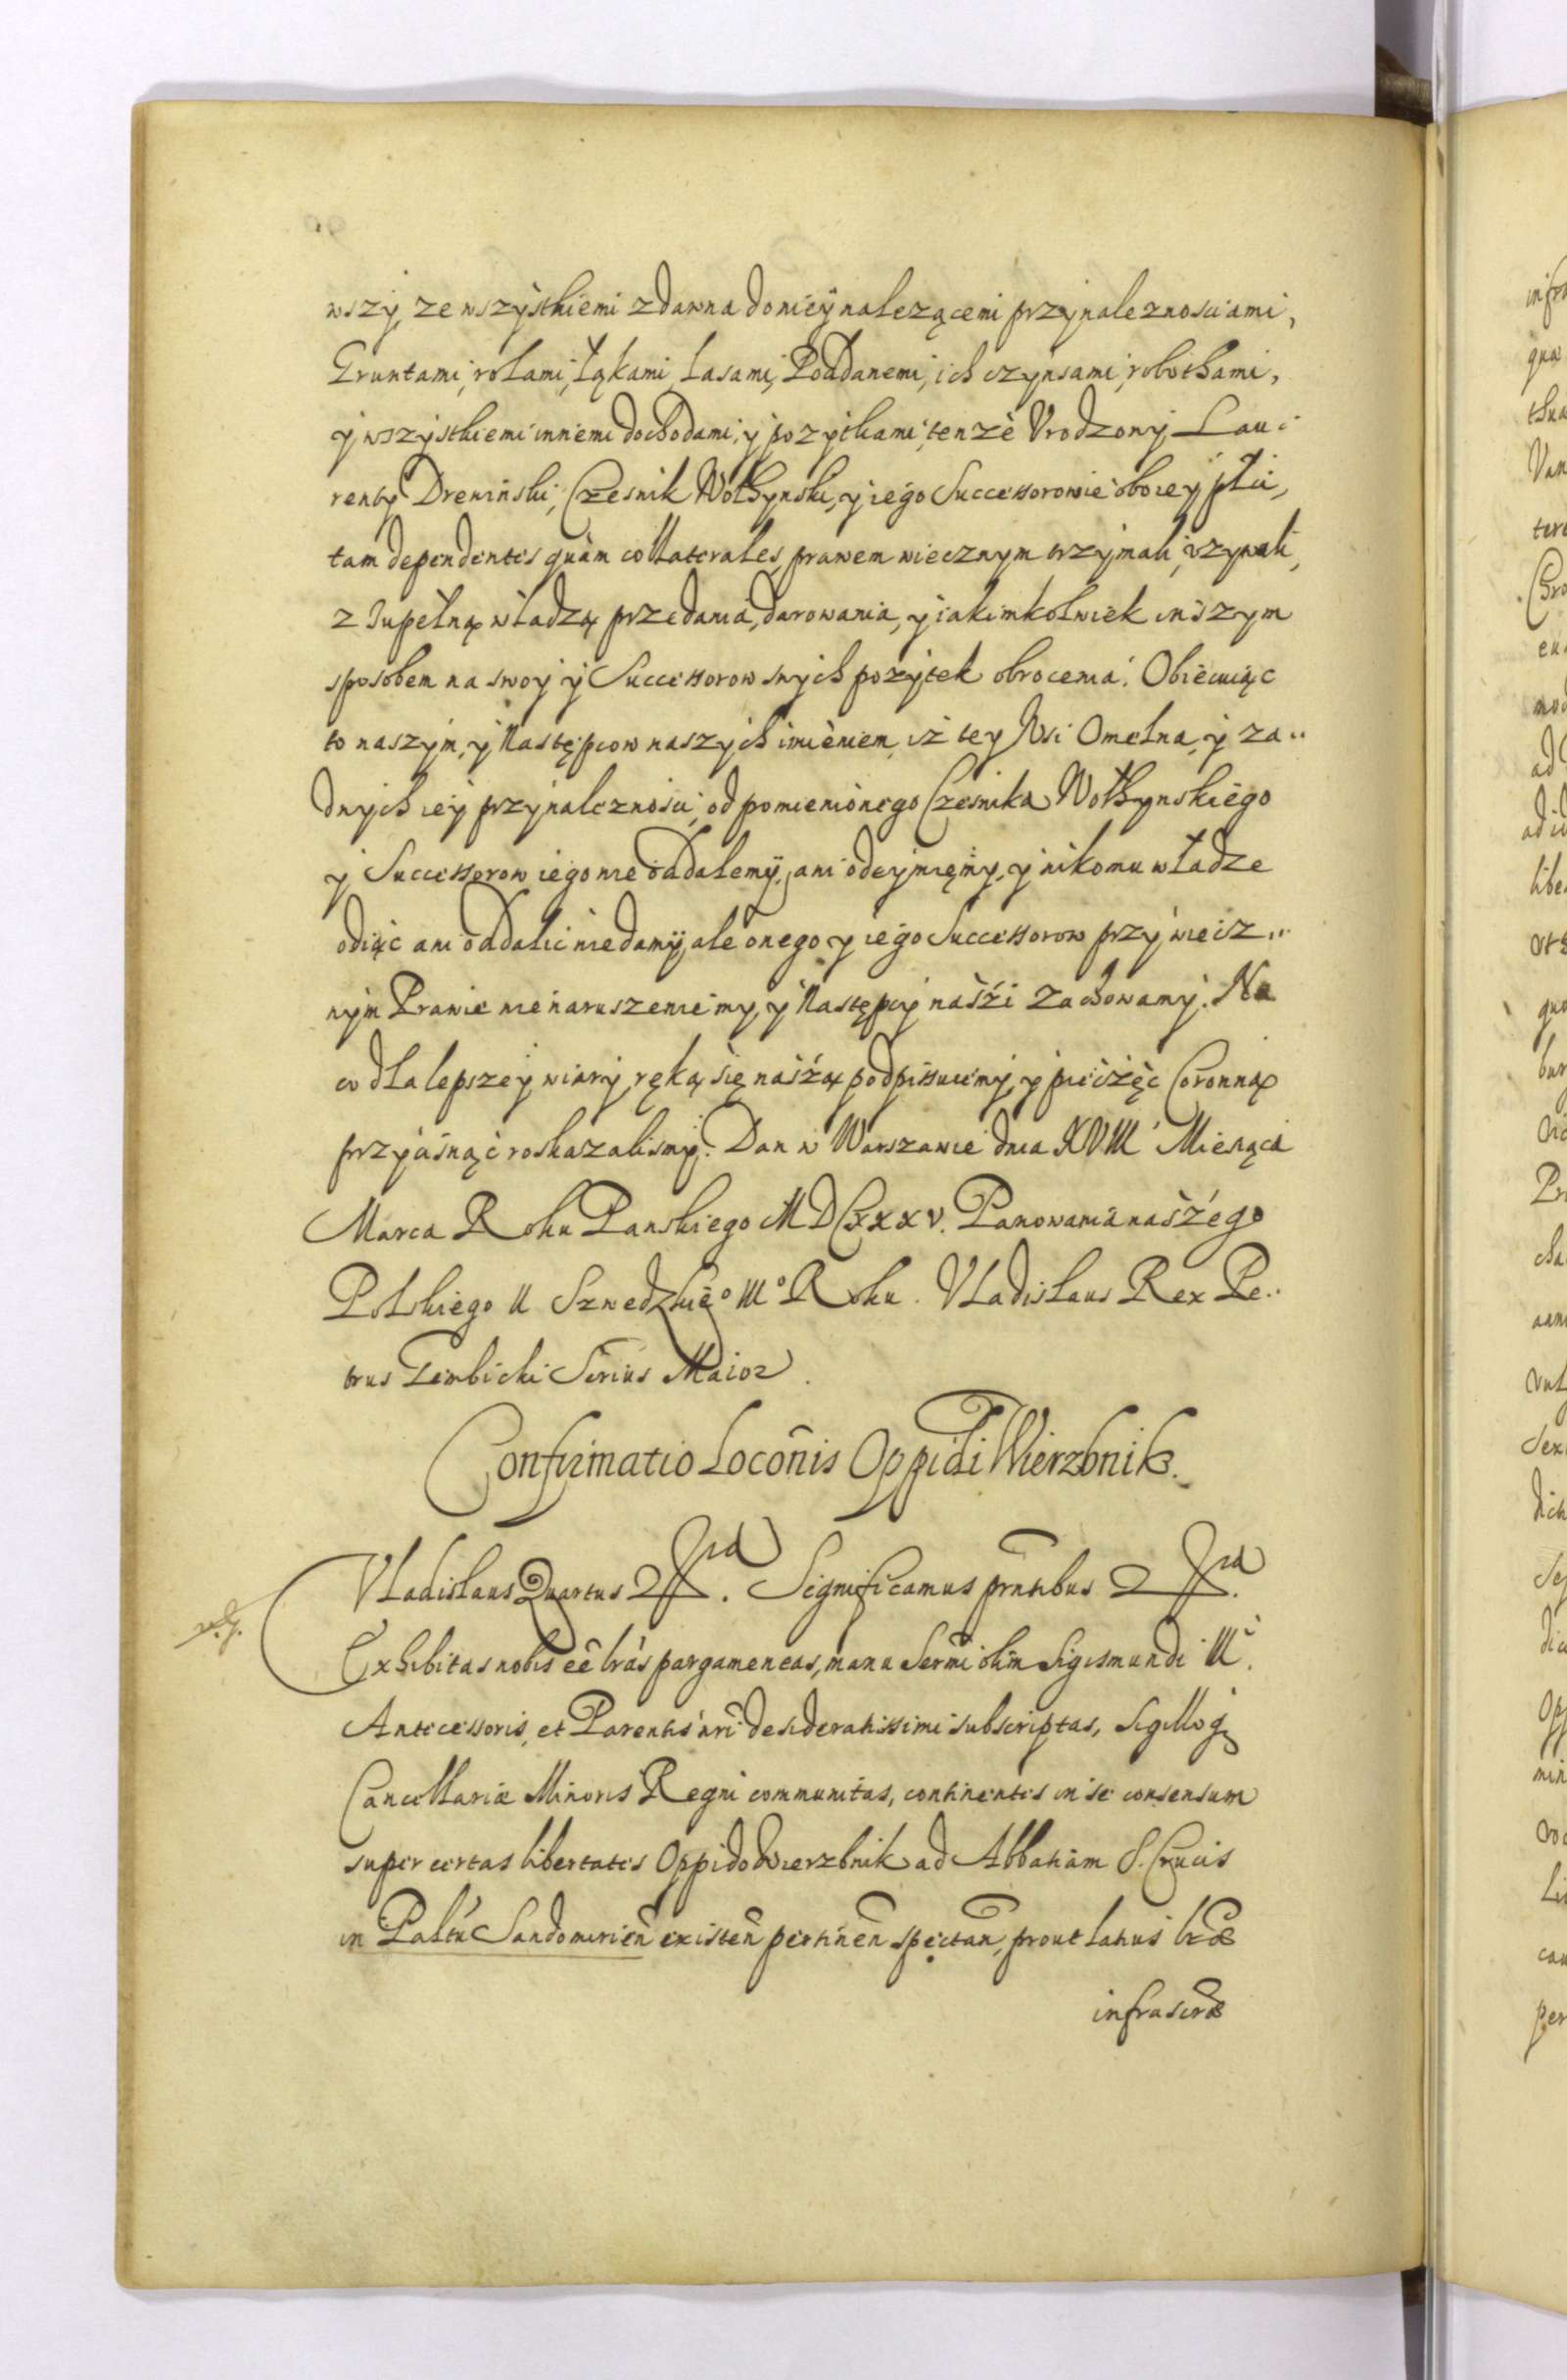 wszy, ze wszystkiemi zdawna do niey nalezącemi przynaleznosciami,
Gruntami, rolami, łąkami, Lasami, Poddanemi, ich czynsami, robothami,
y wszystkiemi innemi dochodami, y pozytkami, tenze Vrodzony Lau:
renty Drewinski, Czesnik Wołhynski, y iego Successorowie oboiey płci,
tam dependentes quàm collaterales, prawem wiecznym trzymali, vzywali,
z zupełną władzą przedania, darowania, y iakimkolwiek inszym
sposobem na swoy y Successorow swych pozytek obrocenia. Obiecuiąc
to naszym, y Następcow naszych imieniem, iż tey Wsi Omelna, y za..
dnych iey przynaleznosci, od pomienionego Czesnika Wołhynskiego
y Successorow iego nie oddalemy, ani odeymięmy, y nikomu władze
odiąc ani oddalic nie damy, ale onego y iego Successorow przy wiecz..
nym Prawie nienaruszenie my, y Następcy naszi zachowamy. Na
co dla lepszey wiary, ręką się naszą podpissuiemy, y pieczęc Coronną
przyćisnąć roskazalismy. Dan w Warszawie dnia XVIII Miesąca
Marca Roku Panskiego MDCXXXV. Panowania naszego
Polskiego II Szwedzkiego IIIº Roku. Vladislaus Rex Pe..
trus Gembicki Sĕrius Maior.
Confirmatio Locõnis Oppidi Wierzbnik.
Vladislaus Quartus &ra. Significamus pñtibus &ra.
Exhibitas nobis eê lrãs pargameneas, manu Sermi olim Sigismundi III.
Antecessoris, et Parentis nri desideratissimi subscriptas, Sigilloq
Cancellariæ Minoris Regni communitas, continentes in se consensum
super certas libertates Oppido Wierzbnik ad Abbatiam S. Crucis
in Palttu Sandomirieñ existeñ pertineñ spectañ, prout latius lræ
infrascræ